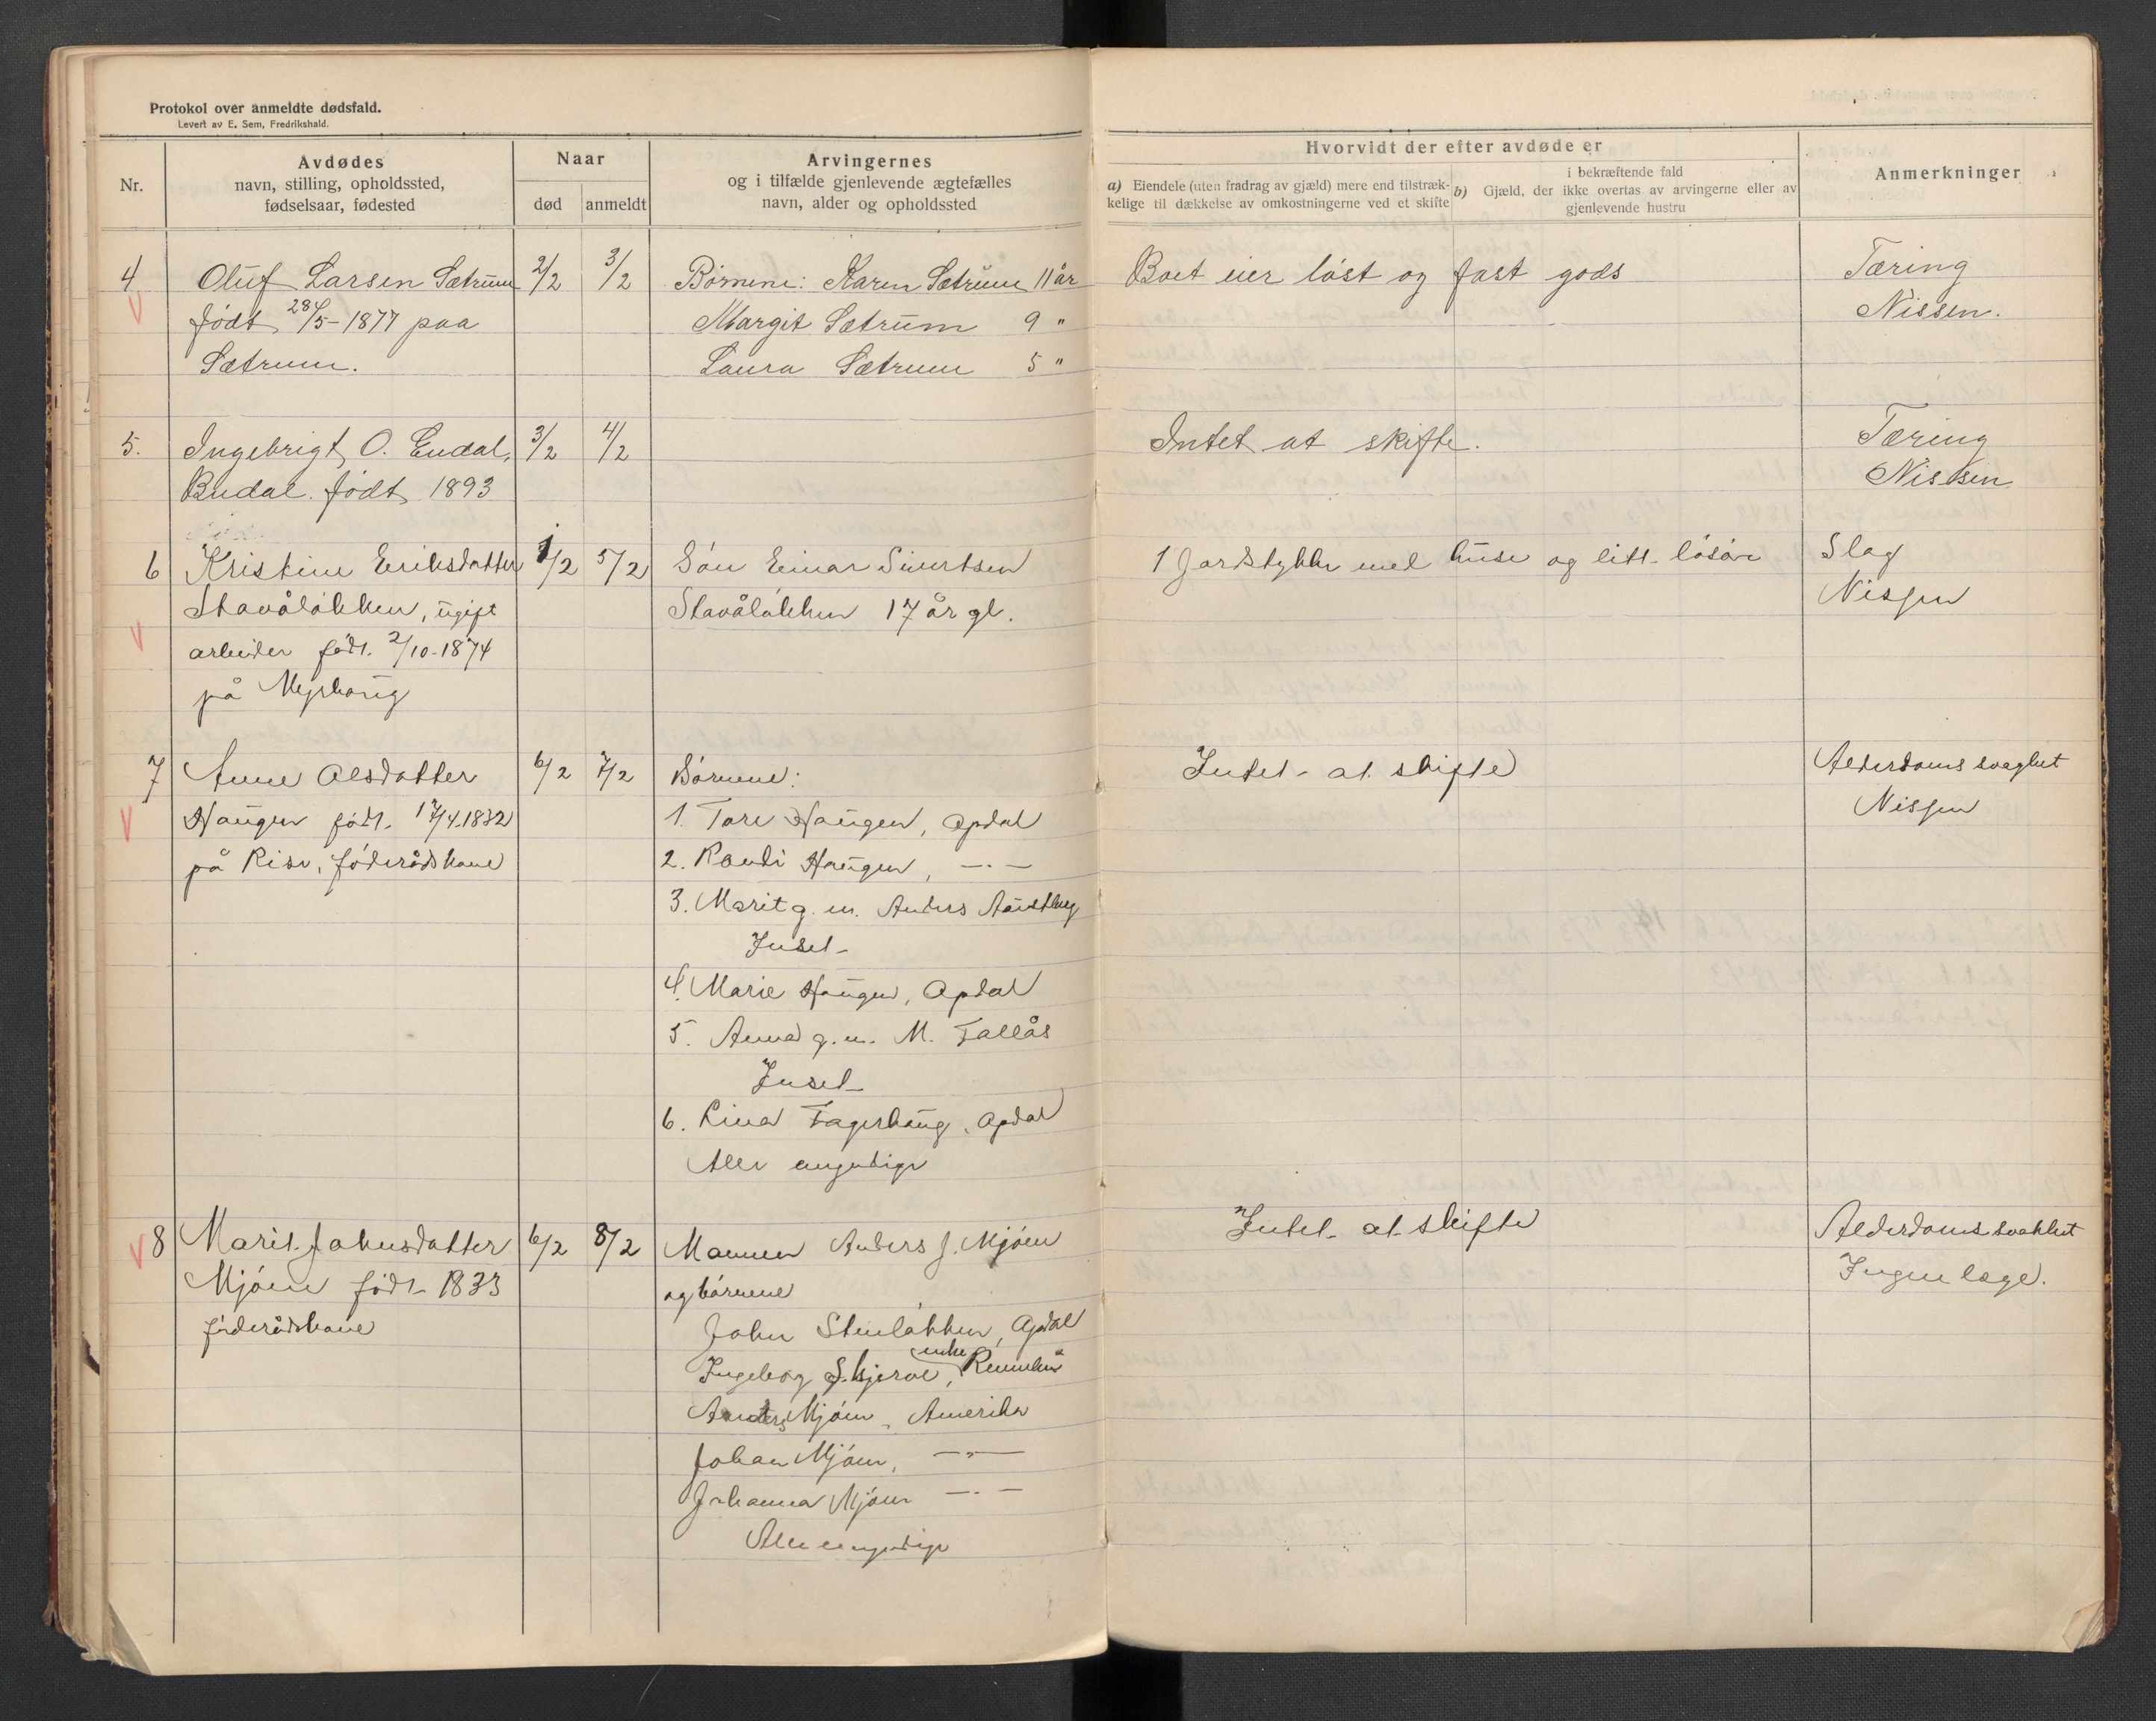 Protokol over anmeldte dødsfald.
Levert av E. Sem, Fredrikshald.
Nr.
Avdødes
navn, stilling, opholdssted,
fødselsaar, fødested
Naar
død
anmeldt
Arvingernes
og i tilfælde gjenlevende ægtefælles
navn, alder og opholdssted
Hvorvidt der efter avdøde er
a) Eiendele (uten fradrag av gjæld) mere end tilstræk-
kelige til dækkelse av omkostningerne ved et skifte
i bekræftende fald
b) Gjæld, der ikke overtas av arvingerne eller av
gjenlevende hustru
Anmerkninger
4 Oluf Larsen Sætrum 2/2 3/2 Børnene: Karen Sætrum 11 år Boet eier løst og fast gods Tæring
V født 28/5-1877 paa Margit Sætrum 9 " Nissen.
Sætrum. Laura Sætrum 5 "
5. Ingebrigt O. Endal, 3/2 4/2 Intet at skifte. Tæring
Budal. født 1893 Nissen
6 Kristine Eriksdatter 1/2 5/2 Søn Einar Sivertsen 1 Jordstykke med huse og litt løsøre Slag
Stavåløkken, ugift Stavåløkken 17 år gl. Nissen
V arbeider født 2/10-1874
på
7 Anne Olsdatter 6/2 7/2 Børnene: Intet at skifte Alderdoms svaghet
V Haugen født 17/4.1832 1. Tore Haugen, Opdal Nissen
på Rise, føderådskone 2. Randi Haugen, -"-
3. Marit g. m. Anders
Inset
4. Marie Haugen, Opdal
5. Anna g. m. M. Tallås
Inset
6. Lina Fagerhaug, Opdal
Alle myndige
V 8 Marit Johnsdatter 6/2 8/2 Mannen Anders J. Mjøen Intet at skifte Alderdomssvakhet
Mjøen født 1833 og børnene Ingen læge.
føderådskone John Stenløkken, Opdal
enke
Ingeborg Skjerve, Rennebu
Anders Mjøen, Amerika
Johan Mjøen, -"-
Johanna Mjøen -"-
Alle myndige